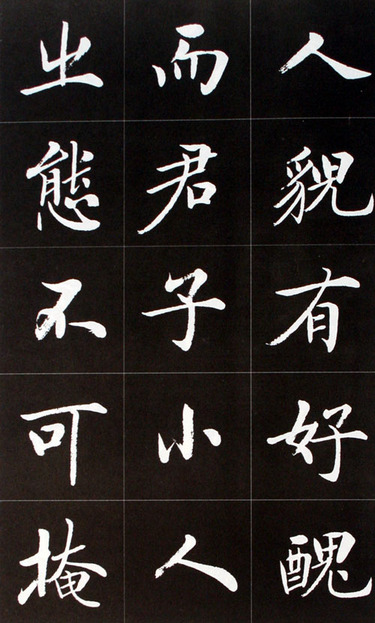 人貌有好醜
而君子小人
之態不可掩